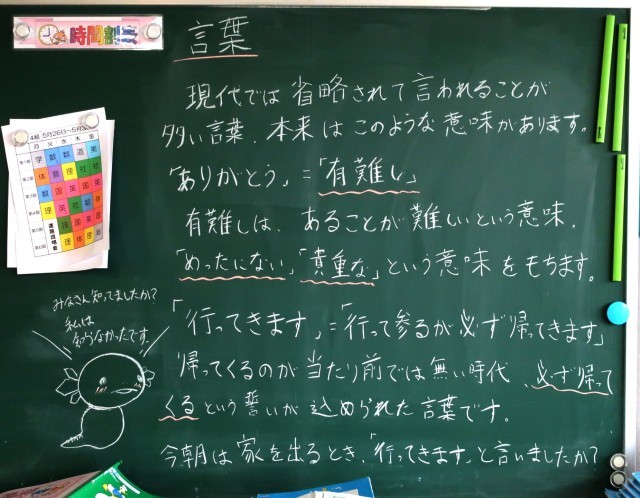 時間割表
4組 5月26日～5月
月 火 水 木 金
言葉
現代では省略されて言われることが
多い言葉、本来はこのような意味があります。
「ありがとう」=「有難し」
有難しは、あることが難しいという意味。
「めったにない」「貴重な」という意味をもちます。
「行ってきます」=「行って参るが必ず帰ってきます」
帰ってくるのが当たり前では無い時代、必ず帰って
くるという誓いが込められた言葉です。
今朝は家を出るとき、「行ってきます」と言いましたか?
みなさん知ってましたか?
私は
知らなかったです。